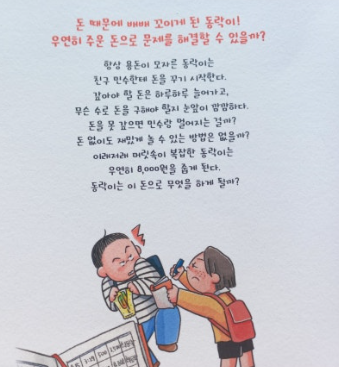 돈 때문에 배배 꼬이게 된 동락이!
우연히 주운 돈으로 문제를 해결할 수 있을까?
항상 용돈이 모자른 동락이는
친구 민수한테 돈을 꾸기 시작한다.
갚아야 할 돈은 하루하루 늘어가고,
무슨 수로 돈을 구해야 할지 눈앞이 깜깜하다.
돈을 못 갚으면 민수랑 멀어지는 걸까?
돈 없이도 재밌게 놀 수 있는 방법은 없을까?
이래저래 머릿속이 복잡한 동락이는
우연히 8,000원을 줍게 된다.
동락이는 이 돈으로 무엇을 하게 될까?